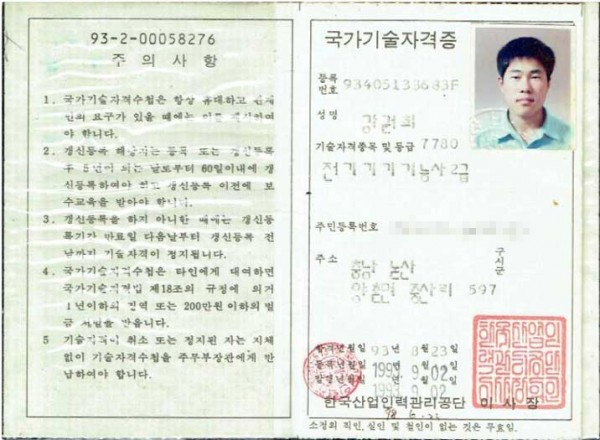 93-2-00058276
주 의 사 항
1. 국가기술자격수첩은 항상 휴대하고 관계
인의 요구가 있을 때에는 이를 제시하여
야 합니다.
2. 갱신등록 해당자는 등록 또는 갱신등록
후 5년이 되는 날로부터 60일이내에 갱
신등록하여야 하고 갱신등록 이전에 보
수교육을 받아야 합니다.
3. 갱신등록을 하지 아니한 때에는 갱신등
록기간 만료일 다음날부터 갱신등록 전
날까지 기술자격이 정지됩니다.
4. 국가기술자격수첩은 타인에게 대여하면
국가기술자격법 제18조의 규정에 의거
1년이하의 징역 또는 200만원 이하의 벌
금 처벌을 받읍니다.
5 기술자격이 취소 또는 정지된 자는 지체
없이 기술자격수첩을 주무부장관에게 반
납하여야 합니다.
국가기술자격증
등록
번호 93405133683F
성명
기술자격종목 및 등급 7780
전기기기기능사2급
주민등록번호
주소 충남 논산 구시군
양촌면 중산리 597
합격년월일 93년 8월 23일
등록년월일 1993. 9. 02
발행년월일 1993. 9. 02
한국산업인력관리공단 이 사 장
소정의 직인, 실인 및 철인이 없는 것은 무효임.